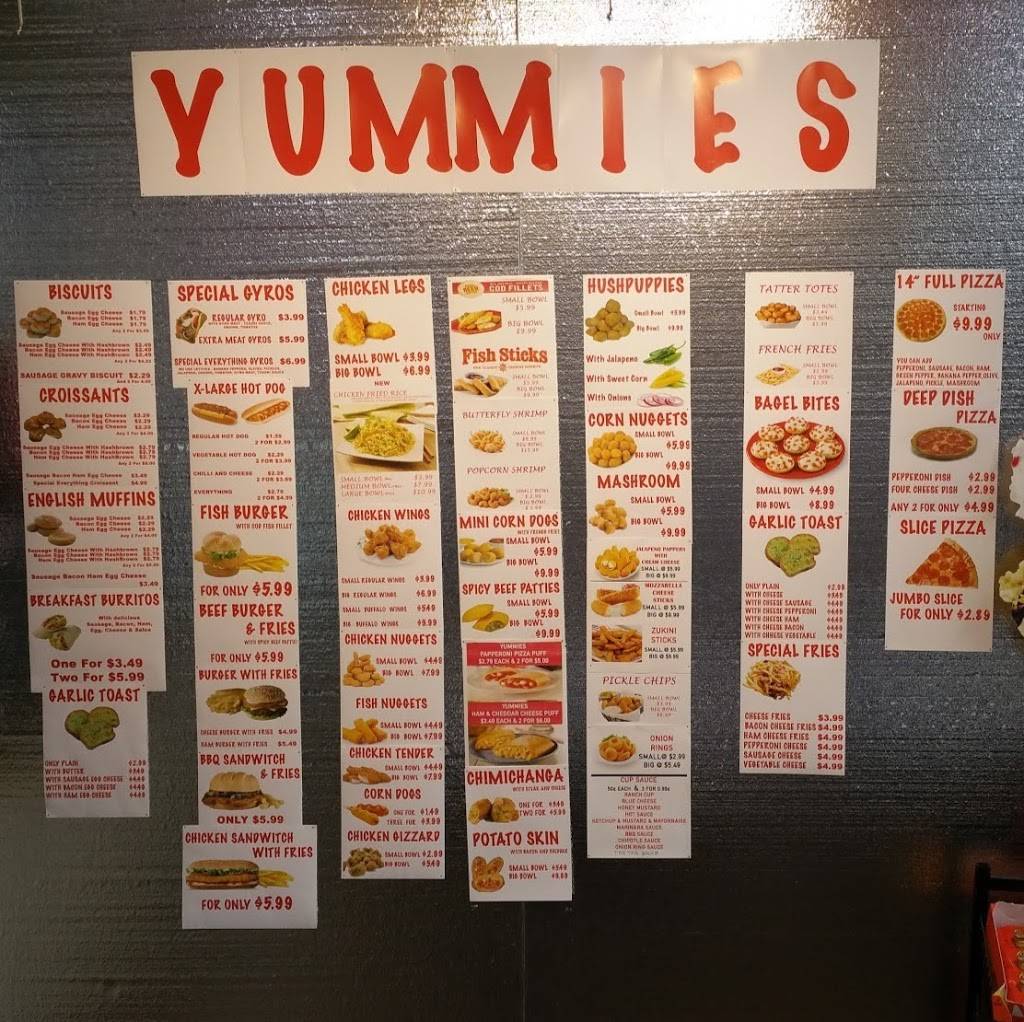 YUMMIES
BISCUITS
Sausage Egg Cheese $1.75
Bacon Egg Cheese $1.75
Ham Egg Cheese $1.75
Sausage Egg Cheese With Hashbrown $2.49
Bacon Egg Cheese With Hashbrown $2.49
Ham Egg Cheese With Hashbrown $2.49
SAUSAGE GRAVY BISCUIT $2.29
CROISSANTS
Sausage Egg Cheese $2.29
Bacon Egg Cheese $2.29
Ham Egg Cheese $2.29
Sausage Egg Cheese With Hashbrown
Bacon Egg Cheese With Hashbrown
Ham Egg Cheese With Hashbrown
Sausage Bacon Ham Egg Cheese $3.49
Special Everything Croissant $4.99
ENGLISH MUFFINS
Sausage Egg Cheese $2.29
Bacon Egg Cheese $2.29
Ham Egg Cheese $2.29
Sausage Egg Cheese With Hashbrown
Bacon Egg Cheese With Hashbrown
Ham Egg Cheese With Hashbrown
Sausage Bacon Ham Egg Cheese
$3.49
BREAKFAST BURRITOS
With delicious
Sausage, Bacon, Ham,
Egg, Cheese & Salsa
One For $3.49
Two For $5.99
GARLIC TOAST
ONLY PLAIN $2.99
WITH BUTTER
WITH SAUSAGE EGG CHEESE
WITH BACON EGG CHEESE
WITH HAM EGG CHEESE
SPECIAL GYROS
REGULAR GYRO $3.99
EXTRA MEAT GYROS $5.99
SPECIAL EVERYTHING GYROS $6.99
X-LARGE HOT DOG
REGULAR HOT DOG
2 FOR $2.99
VEGETABLE HOT DOG $2.29
2 FOR $3.99
CHILLI AND CHEESE $2.29
2 FOR $3.99
EVERYTHING $2.79
2 FOR $4.99
FISH BURGER
WITH COD FISH FILLET
FOR ONLY $5.99
BEEF BURGER
& FRIES
FOR ONLY $5.99
BURGER WITH FRIES
CHEESE BURGER WITH FRIES $4.99
HAM BURGER WITH FRIES $5.49
BBQ SANDWITCH
& FRIES
ONLY $5.99
CHICKEN SANDWITCH
WITH FRIES
FOR ONLY $5.99
CHICKEN LEGS
SMALL BOWL $3.99
BIG BOWL $6.99
NEW
CHICKEN FRIED RICE
SMALL BOWL $3.99
MEDIUM BOWL $7.99
LARGE BOWL $10.99
CHICKEN WINGS
SMALL REGULAR WINGS $3.99
BIG REGULAR WINGS $6.99
SMALL BUFFALO WINGS $5.49
BIG BUFFALO WINGS $9.99
CHICKEN NUGGETS
SMALL BOWL $4.49
BIG BOWL $7.99
FISH NUGGETS
SMALL BOWL $4.49
BIG BOWL $7.99
CHICKEN TENDER
SMALL BOWL $4.49
BIG BOWL $7.99
CORN DOGS
ONE FOR $1.49
THREE FOR $3.99
CHICKEN GIZZARD
SMALL BOWL $2.99
BIG BOWL $5.49
COD FILLETS
SMALL BOWL
$5.99
BIG BOWL
$9.99
Fish Sticks
SMALL BOWL
BIG BOWL
BUTTERFLY SHRIMP
SMALL BOWL
BIG BOWL
POPCORN SHRIMP
SMALL BOWL
BIG BOWL
MINI CORN DOGS
SMALL BOWL
$5.99
BIG BOWL
$9.99
SPICY BEEF PATTIES
SMALL BOWL
$5.99
BIG BOWL
$9.99
YUMMIES
PAPPERONI PIZZA PUFF
$2.79 EACH & 2 FOR $5.00
YUMMIES
HAM & CHEDDAR CHEESE PUFF
$3.49 EACH & 2 FOR $6.00
CHIMICHANGA
WITH STEAK AND CHEESE
ONE FOR $3.49
TWO FOR $5.99
POTATO SKIN
WITH BACON AND CHEDDAR
SMALL BOWL $5.49
BIG BOWL $9.99
HUSHPUPPIES
Small Bowl $5.99
Big Bowl $9.99
With Jalapeno
With Sweet Corn
With Onions
CORN NUGGETS
SMALL BOWL
$5.99
BIG BOWL
$9.99
MASHROOM
SMALL BOWL
$5.99
BIG BOWL
$9.99
JALAPENO POPPERS
WITH
CREAM CHEESE
SMALL @ $5.99
BIG @ $9.99
MOZZARELLA
CHEESE
STICKS
SMALL @ $5.99
BIG @ $9.99
ZUKINI
STICKS
SMALL @ $5.99
BIG @ $9.99
PICKLE CHIPS
SMALL BOWL
BIG BOWL
ONION
RINGS
SMALL @ $2.99
BIG @ $5.49
CUP SAUCE
50¢ EACH & 3 FOR 0.99¢
RANCH CUP
BLUE CHEESE
HONEY MUSTARD
HOT SAUCE
KETCHUP & MUSTARD & MAYONNAISE
MARINARA SAUCE
BBQ SAUCE
CHIPOTLE SAUCE
ONION RING SAUCE
TATTER TOTES
SMALL BOWL
BIG BOWL
FRENCH FRIES
SMALL BOWL
BIG BOWL
BAGEL BITES
SMALL BOWL $4.99
BIG BOWL $8.99
GARLIC TOAST
ONLY PLAIN $2.99
WITH CHEESE $3.49
WITH CHEESE SAUSAGE $4.49
WITH CHEESE PEPPERONI $4.49
WITH CHEESE HAM $4.49
WITH CHEESE BACON $4.49
WITH CHEESE VEGETABLE $4.49
SPECIAL FRIES
CHEESE FRIES $3.99
BACON CHEESE FRIES $4.99
HAM CHEESE FRIES $4.99
PEPPERONI CHEESE $4.99
SAUSAGE CHEESE $4.99
VEGETABLE CHEESE $4.99
14" FULL PIZZA
STARTING
$9.99
ONLY
YOU CAN ADD
PEPPERONI, SAUSAGE, BACON, HAM,
GREEN PEPPER, BANANA PEPPER, OLIVE,
JALAPENO, PICKLE, MASHROOM
DEEP DISH
PIZZA
PEPPERONI DISH $2.99
FOUR CHEESE DISH $2.99
ANY 2 FOR ONLY $4.99
SLICE PIZZA
JUMBO SLICE
FOR ONLY $2.89